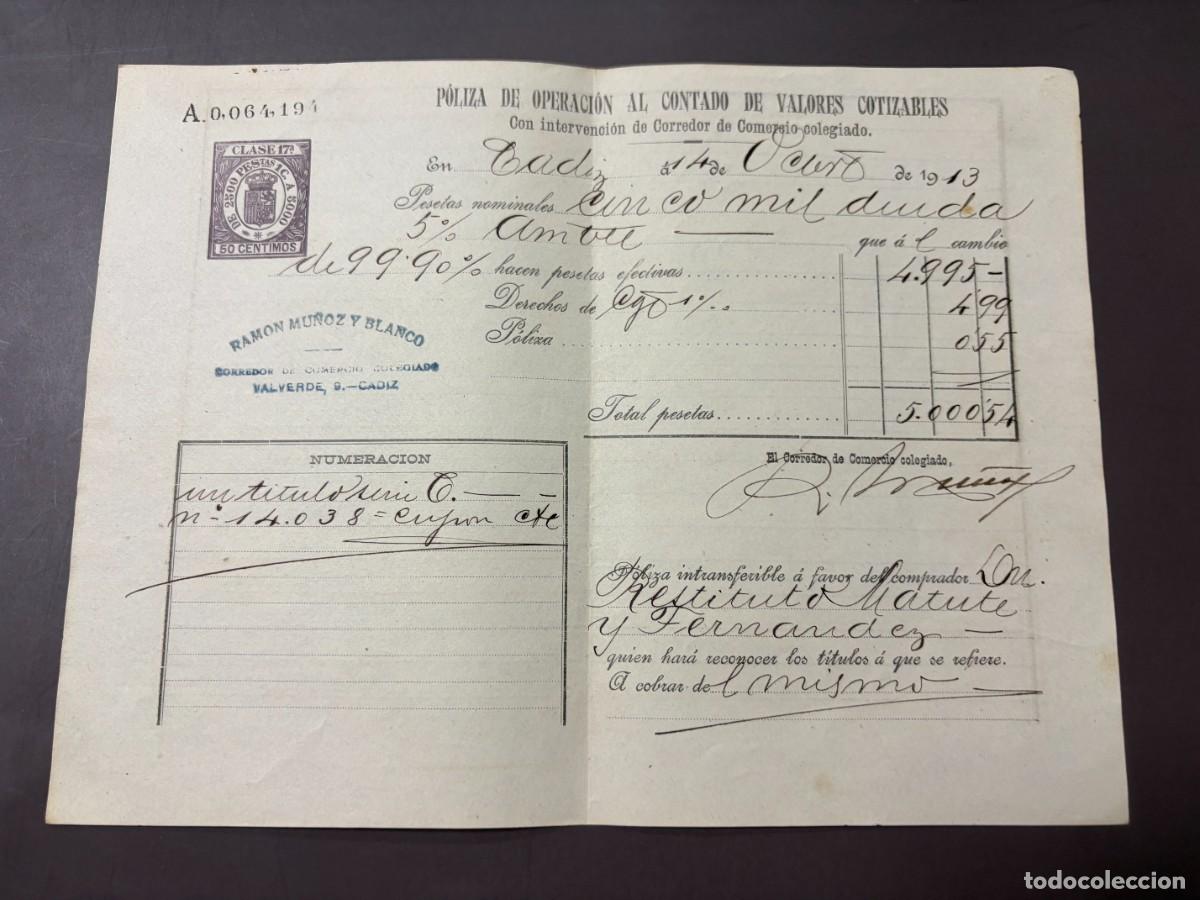 A. 0,064,194
PÓLIZA DE OPERACIÓN AL CONTADO DE VALORES COTIZABLES
Con intervención de Corredor de Comercio colegiado.
CLASE 17ª
DE 2500 PESTAS 1 C. A 5000
50 CENTIMOS
En Cadiz á 14 de Octre de 1913
Pesetas nominales cinco mil deuda
5% Amble — que á l cambio
de 99'90% hacen pesetas efectivas 4.995 —
Derechos de 1%. 4'99
Póliza 0'55
Total pesetas 5.000'54
RAMON MUÑOZ Y BLANCO
CORREDOR DE COMERCIO COLEGIADO
VALVERDE, 9.—CADIZ
El Corredor de Comercio colegiado,
R. Muñoz
NUMERACION
un titulo serie C. — -
nº 14.038 = cupon cte
Póliza intransferible á favor del comprador Dn.
Restituto Matute
y Fernandez —
quien hará reconocer los títulos á que se refiere.
A cobrar del mismo —
todocoleccion